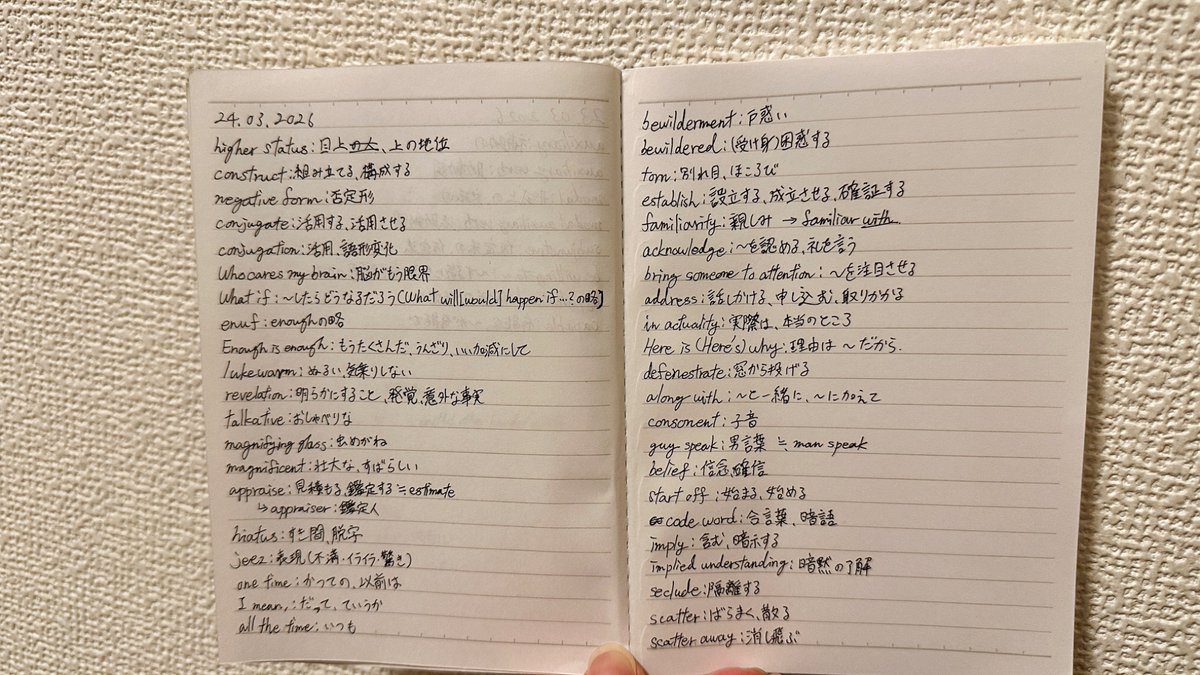 24.03.2026
higher status:目上の人、上の地位
construct:組み立てる、構成する
negative form:否定形
conjugate:活用する、活用させる
conjugation:活用、語形変化
Who cares my brain:脳がもう限界
What if:～したらどうなるだろう(What will[would] happen if…?の略)
enuf:enoughの略
Enough is enough:もうたくさんだ、うんざり、いい加減にして
lukewarm:ぬるい、気乗りしない
revelation:明らかにすること、発覚、意外な事実
talkative:おしゃべりな
magnifying glass:虫めがね
magnificent:壮大な、すばらしい
appraise:見積もる、鑑定する≒estimate
↳appraiser:鑑定人
hiatus:すき間、脱字
jeez:表現(不満・イライラ・驚き)
one time:かつての、以前は
I mean,:だって、ていうか
all the time:いつも
bewilderment:戸惑い
bewildered:(受け身)困惑する
torn:別れ目、ほころび
establish:設立する、成立させる、確証する
familiarity:親しみ → familiar with
acknowledge:～を認める、礼を言う
bring someone to attention:～を注目させる
address:話しかける、申し込む、取りかかる
in actuality:実際は、本当のところ
Here is (Here's) why:理由は～だから.
defenestrate:窓から投げる
along with:～と一緒に、～に加えて
consonent:子音
guy speak:男言葉 ≒ man speak
belief:信念、確信
start off:始まる、始める
code word:合言葉、暗語
imply:含む、暗示する
implied understanding:暗黙の了解
seclude:隔離する
scatter:ばらまく、散る
scatter away:消し飛ぶ